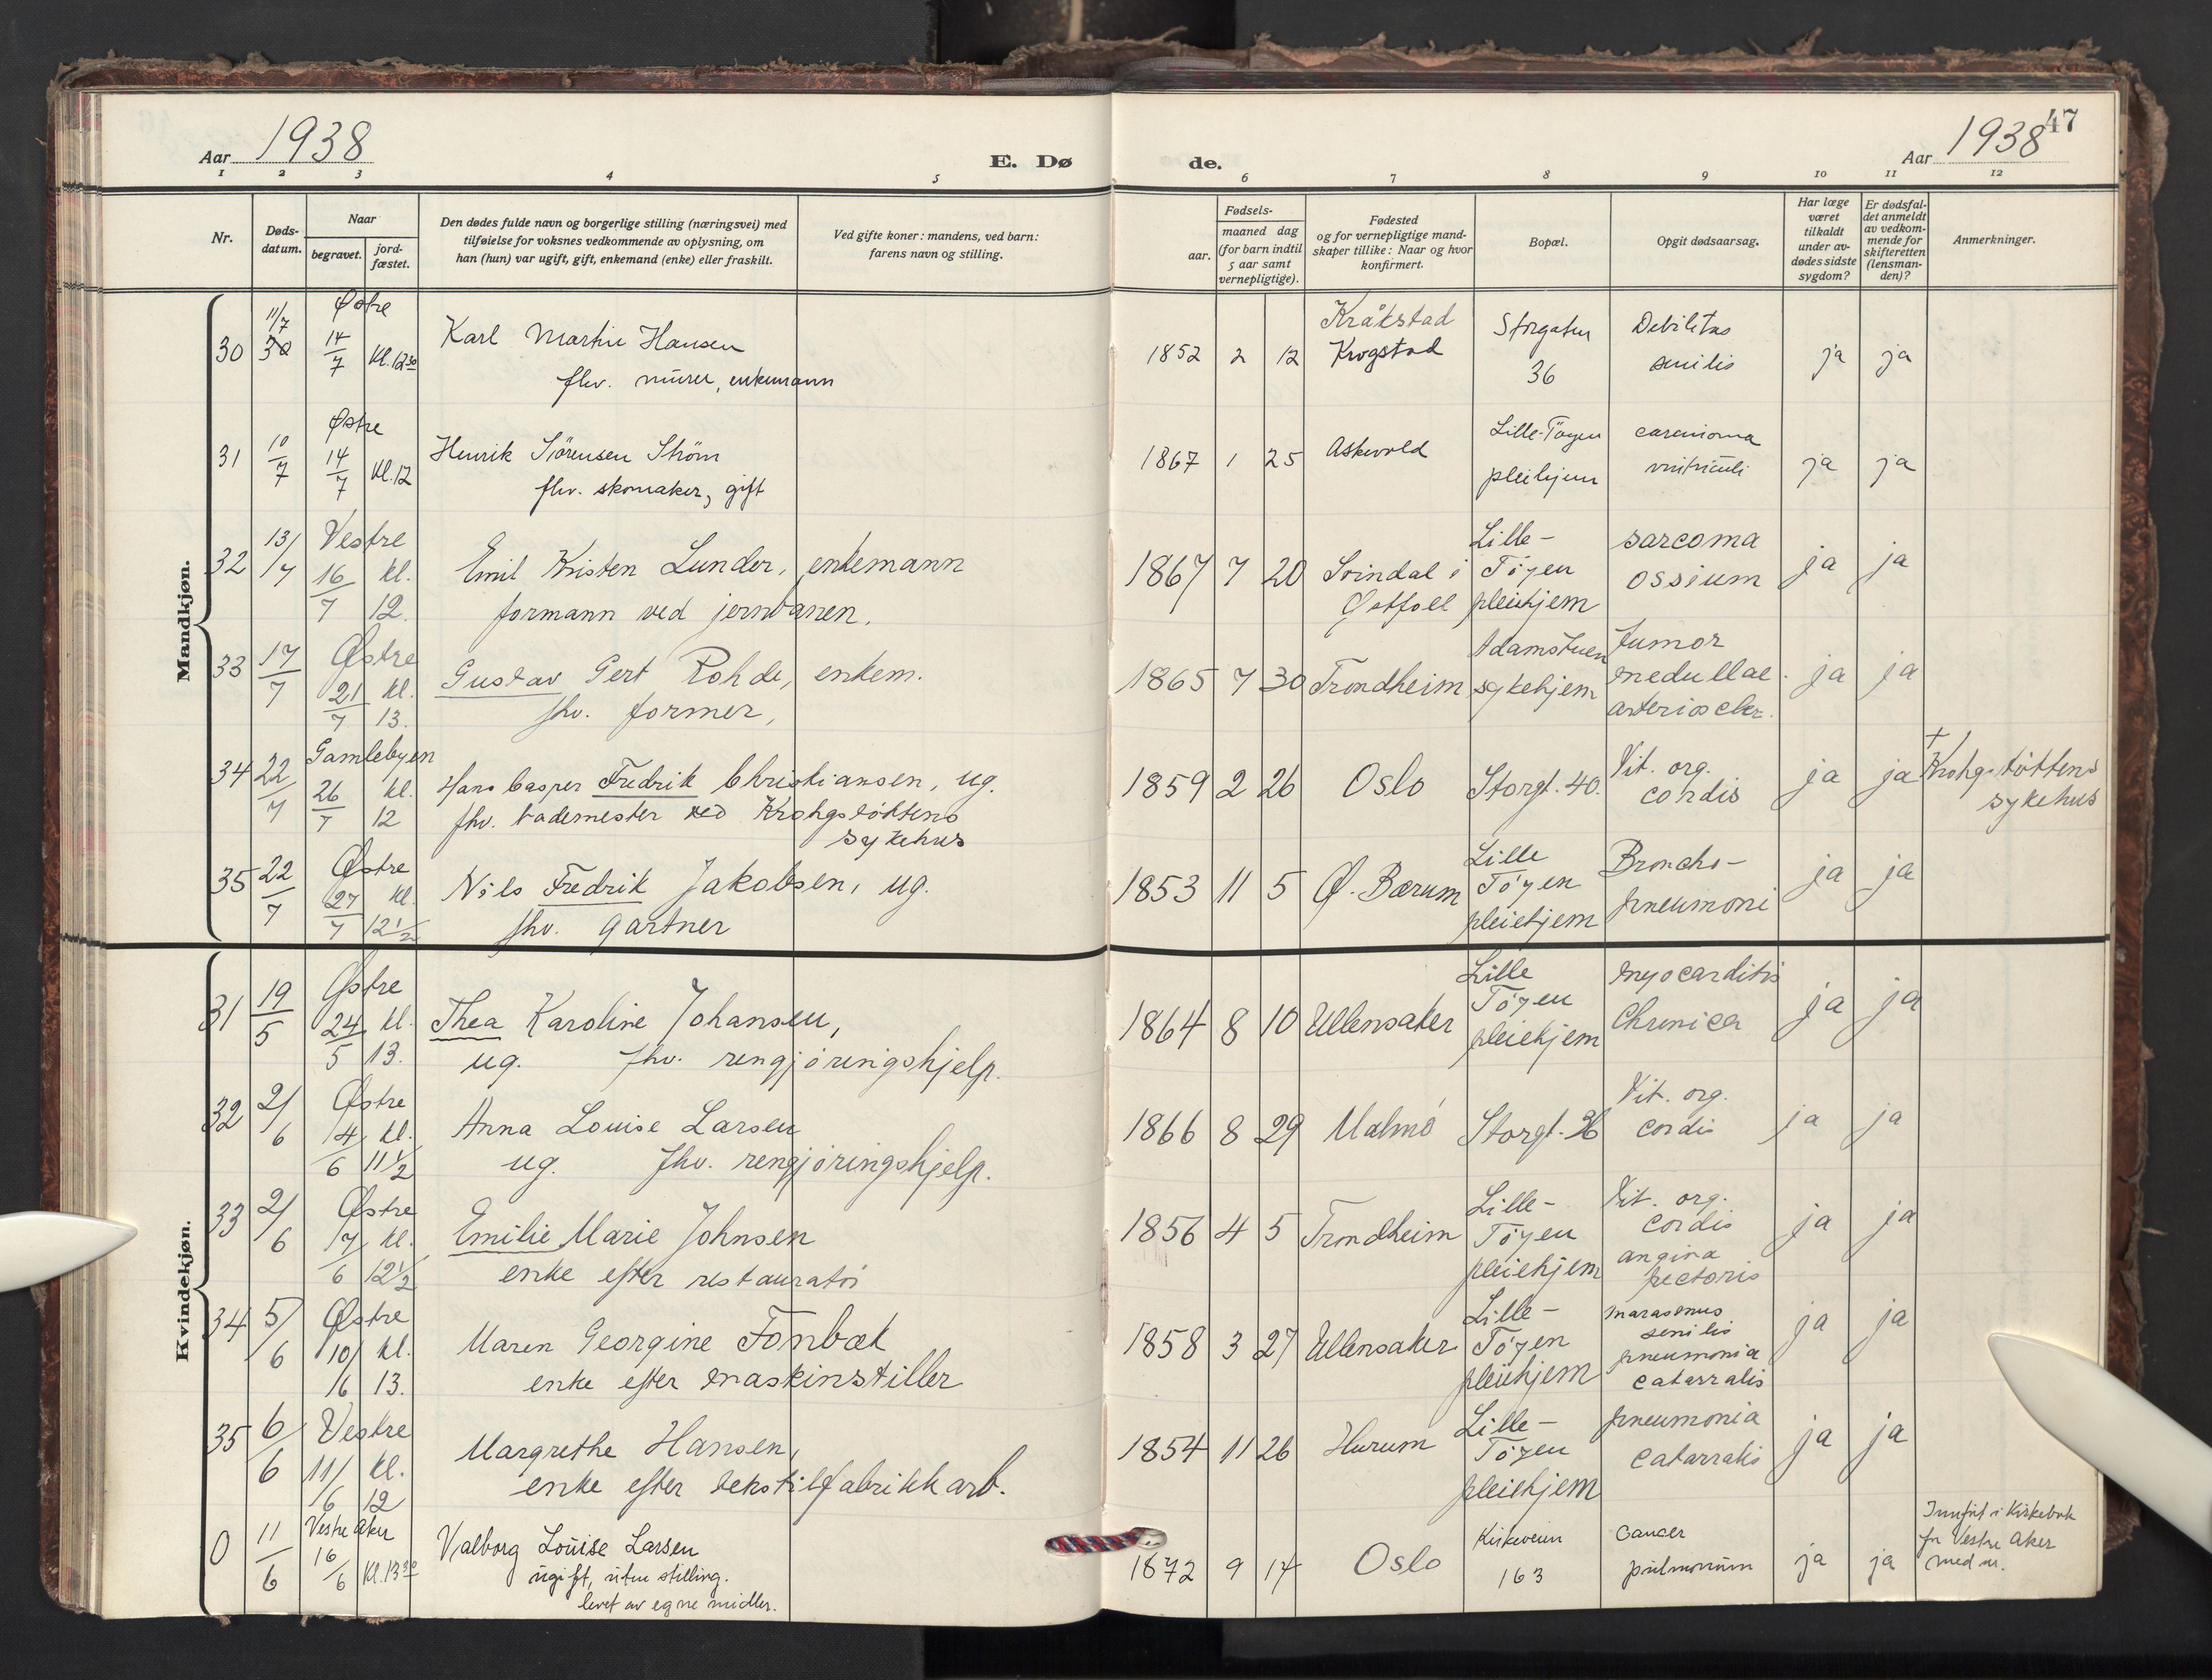 Aar 1938
E. Dø
de.
Aar 1938
47
1 2 3 4 5 6 7 8 9 10 11 12
Nr.
Døds-
datum.
Naar
begravet.
jord-
fæstet.
Den dødes fulde navn og borgerlige stilling (næringsvei) med
tilføielse for voksnes vedkommende av oplysning, om
han (hun) var ugift, gift, enkemand (enke) eller fraskilt.
Ved gifte koner: mandens, ved barn:
farens navn og stilling.
Fødsels-
aar.
maaned dag
(for barn indtil
5 aar samt
vernepligtige).
Fødested
og for vernepligtige mand-
skaper tillike: Naar og hvor
konfirmert.
Bopæl.
Opgit dødsaarsag.
Har læge
været
tilkaldt
under av-
dødes sidste
sygdom?
Er dødsfal-
det anmeldt
av vedkom-
mende for
skifteretten
(lensman-
den)?
Anmerkninger.
Mandkjøn.
30 11/7 Østre 14/7 Kl. 12 30
Karl Martin Hansen
fhv. murer, enkemann
1852 2 12
Kråkstad
Krogstad
Storgaten
36
Debilitas
senilis
ja ja
31 10/7 Østre 14/7 Kl. 12
Henrik Sørensen Strøm
fhv. skomaker, gift
1867 1 25
Askevold
Lille-Tøyen
pleiehjem
carcinoma
ventriculi
ja ja
32 13/7 Vestre 16/7 kl. 12.
Emil Kristen Lunder, enkemann
formann ved jernbanen.
1867 7 20
Svindal i
Østfoll
Lille-
Töyen
pleiehjem
sarcoma
ossium
ja ja
33 17/7 Østre 21/7 kl. 13.
Gustav Gert Rohde, enkem.
fhv. former,
1865 7 30
Trondheim
Adamstuen
sykehjem
Tumor
medullae.
arterioscler.
ja ja
34 22/7 Gamlebyen 26/7 kl. 12
Hans Casper Fredrik Christiansen, ug.
fhv. bademester ved Krohgstøttens
sykehus
1859 2 26
Oslo
Storgt. 40.
Vit. org.
cordis
ja ja
† Krohgstøttens
sykehus
35 22/7 Østre 27/7 kl. 12 1/2
Nils Fredrik Jakobsen, ug.
fhv. gartner
1853 11 5
Ø. Bærum
Lille
Töyen
pleiehjem
Broncho-
pneumoni
ja ja
Kvindekjøn.
31 19/5 Østre 24/5 kl. 13.
Thea Karoline Johansen,
ug. fhv. rengjøringshjelp.
1864 8 10
Ullensaker
Lille
Töyen
pleiehjem
myocarditis
Chronica
ja ja
32 2/6 Østre 14/6 kl. 11 1/2
Anna Louise Larsen
ug. fhv. rengjøringshjelp.
1866 8 29
Malmö
Storgt. 36
Vit. org.
cordis
ja ja
33 2/6 Østre 17/6 kl. 12 1/2
Emilie Marie Johnsen
enke efter restauratör
1856 4 5
Trondheim
Lille-
Töyen
pleiehjem
Vit. org.
cordis
angina
pectoris
ja ja
34 5/6 Østre 10/6 kl. 13.
Maren Georgine Fonbæk
enke efter maskinstiller
1858 3 27
Ullensaker
Lille-
Töyen
pleiehjem
marasmus
senilis
pneumonia
catarralis
ja ja
35 6/6 Vestre 11/6 kl. 12
Margrethe Hansen,
enke efter tekstilfabrikkarb.
1854 11 26
Hurum
Lille-
Töyen
pleiehjem
pneumonia
catarralis
ja ja
0 11/6 Vestre Aker 16/6 Kl. 13 30
Valborg Louise Larsen
ugift, uten stilling.
levet av egne midler.
1872 9 14
Oslo
Kirkeveien
163
Cancer
pulmonum
ja ja
Innført i Kirkebok
for Vestre Aker
med nr.